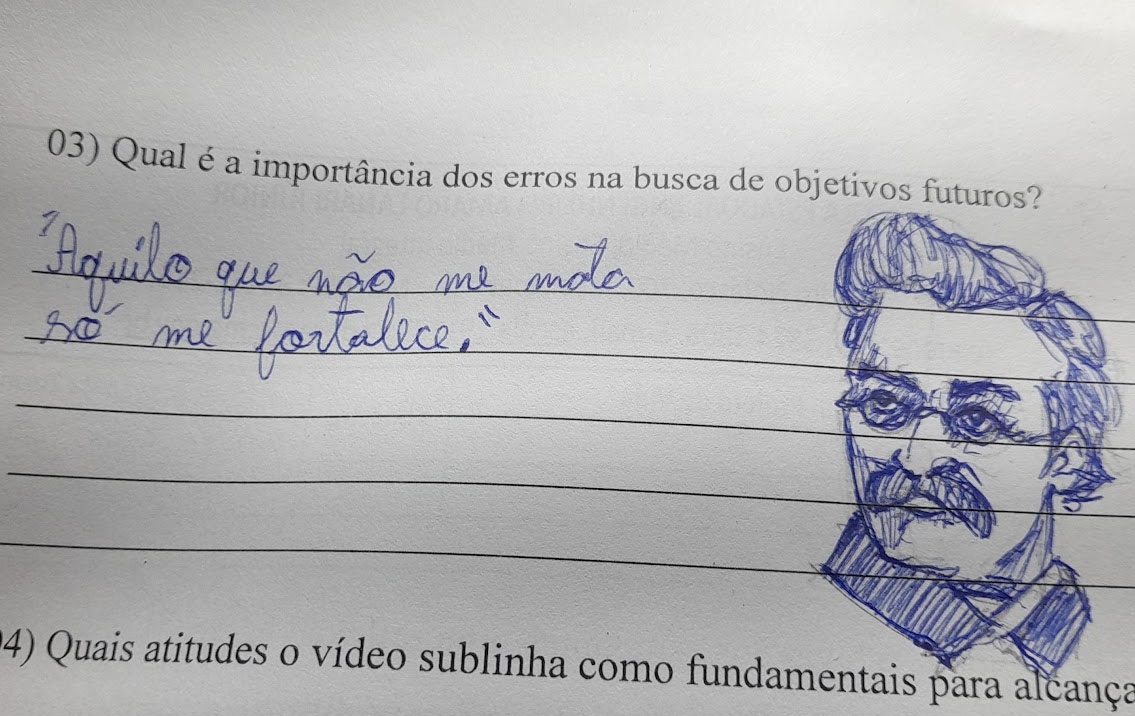 03) Qual é a importância dos erros na busca de objetivos futuros?
"Aquilo que não me mata
só me fortalece."
04) Quais atitudes o vídeo sublinha como fundamentais para alcança